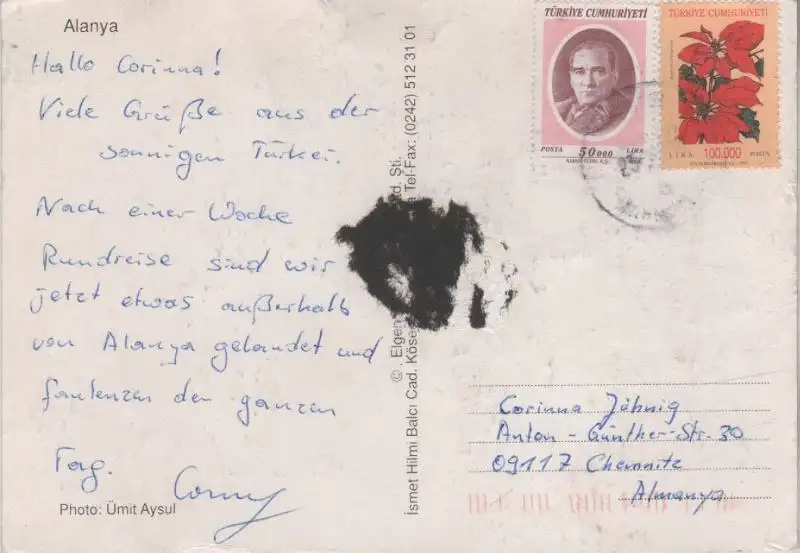 Alanya
Hallo Corinna!
Viele Grüße aus der
sonnigen Türkei.
Nach einer Woche
Rundreise sind wir
jetzt etwas außerhalb
von Alanya gelandet und
faulenzen den ganzen
Tag.
Photo: Ümit Aysul
© Elgen
d. Şti.
İsmet Hilmi Balcı Cad. Köse
a Tel-Fax: (0242) 512 31 01
TÜRKİYE CUMHURİYETİ
POSTA 50000 LİRA
TÜRKİYE CUMHURİYETİ
LİRA 100.000 POSTA
Corinna Jähnig
Anton-Günther-Str. 30
09117 Chemnitz
Almanya